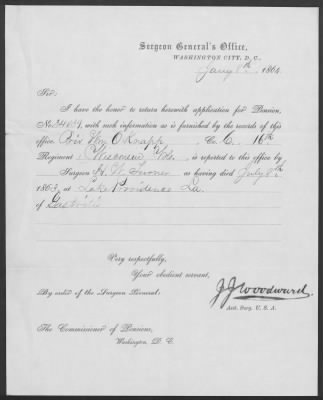 Surgeon General's Office,
WASHINGTON CITY, D. C.
Jany 8th 1864
Sir:
I have the honor to return herewith application for Pension,
No. with such information as is furnished by the records of this
office. Priv Wm O Knapp, Co. C. 16th
Regiment Wisconsin Vols. is reported to this office by
Surgeon W. Turner as having died July 8th
1863, at Lake Providence La.
of Gastritis
Very respectfully,
Your obedient servant,
By order of the Surgeon General:
JJWoodward.
Ast. Surg. U. S. A.
The Commissioner of Pensions,
Washington, D. C.